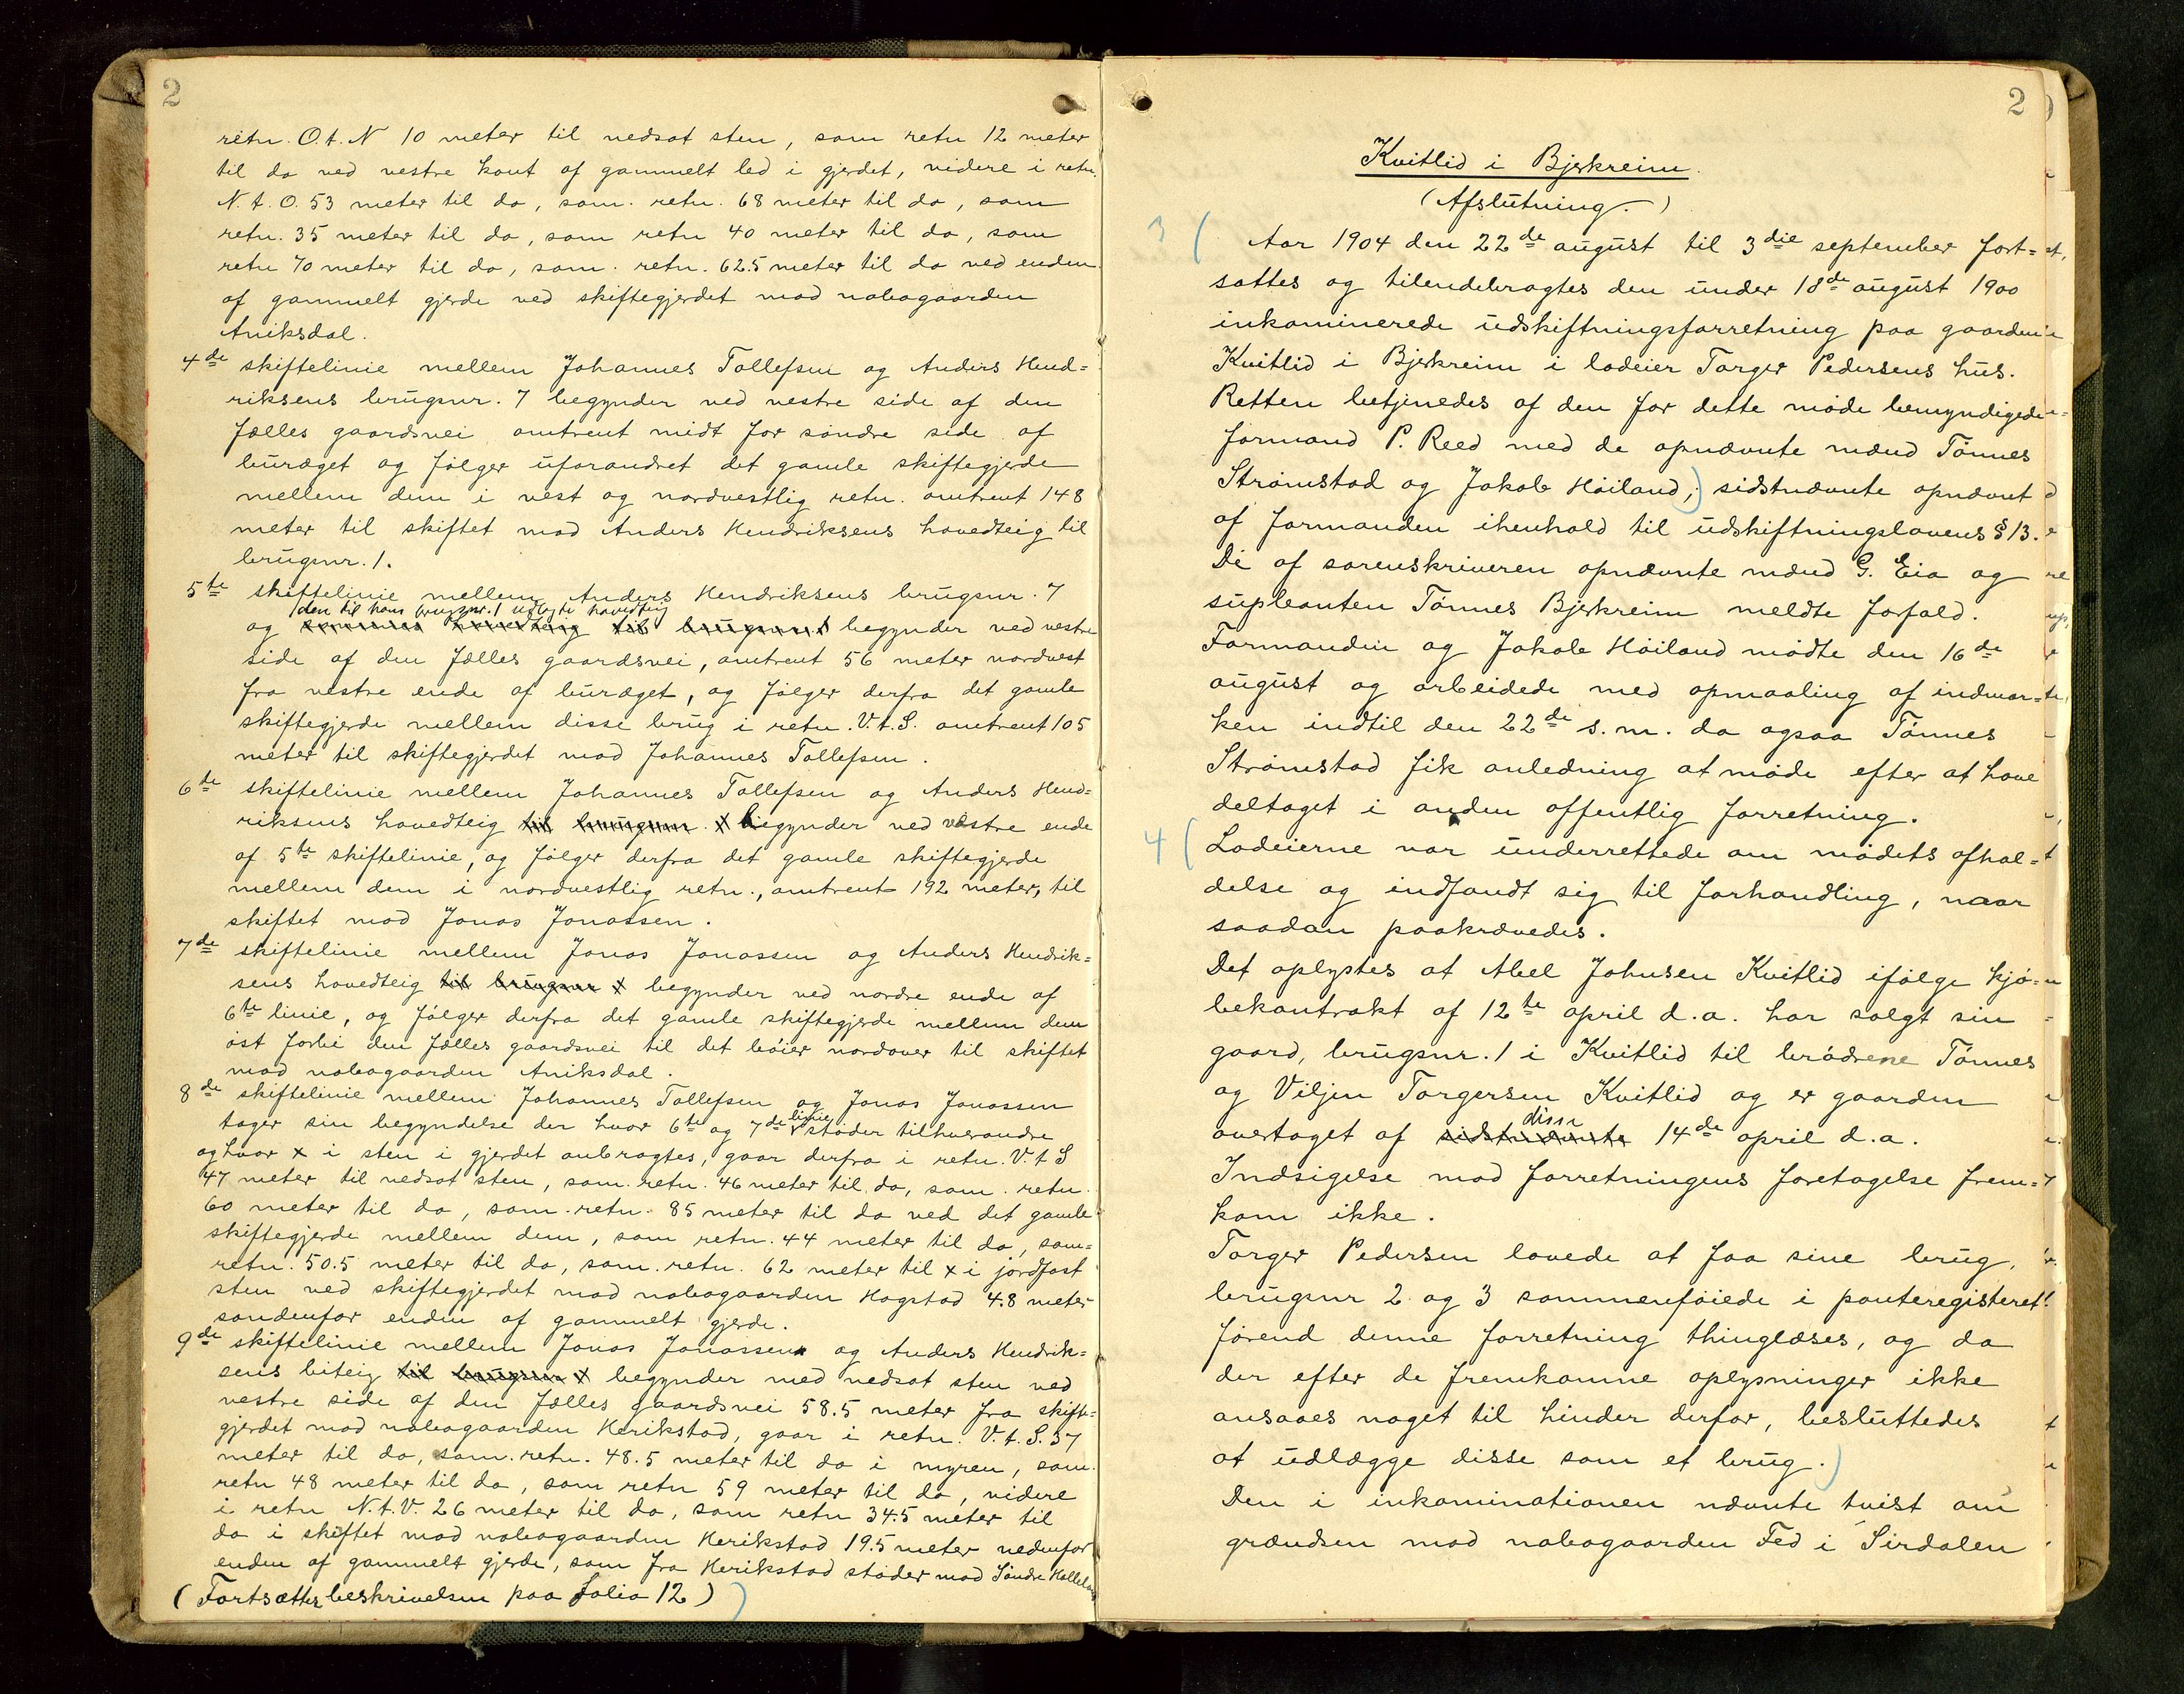 2
retn. O.t.N 10 meter til nedsat sten, sam retn 12 meter
til do ved vestre kant af gammelt led i gjerdet, videre i retn.
N.t.O. 53 meter til do, sam. retn. 68 meter til do, sam
retn. 35 meter til do, sam retn 40 meter til do, sam
retn 70 meter til do, sam. retn. 62.5 meter til do ved enden
af gammelt gjerde ved skiftegjerdet mod nabogaarden
Aniksdal.
4de skiftelinie mellem Johannes Tollefsen og Anders Hend=
riksens brugsnr. 7 begynder ved vestre side af den
fælles gaardsvei omtrent midt for søndre side af
buræget og følger uforandret det gamle skiftegjerde
mellem dem i vest og nordvestlig retn. omtrent 148
meter til skiftet mod Anders Hendriksens hovedteig til
brugsnr. 1.
5te skiftelinie mellem Anders Hendriksens brugsnr. 7
den til ham brugsnr. 1 udlagte hovedteig
og sammes hovedteig til brugsnr. 1 begynder ved vestre
side af den fælles gaardsvei, omtrent 56 meter nordvest
fra vestre ende af buræget, og følger derfra det gamle
skiftegjerde mellem disse brug i retn. V.t.S. omtrent 105
meter til skiftegjerdet mod Johannes Tollefsen.
6te skiftelinie mellem Johannes Tollefsen og Anders Hend=
riksens hovedteig til brugsnr. 1 begynder ved vestre ende
af 5te skiftelinie, og følger derfra det gamle skiftegjerde
mellem dem i nordvestlig retn., omtrent 192 meter, til
skiftet mod Jonas Jonassen.
7de skiftelinie mellem Jonas Jonassen og Anders Hendrik=
sens hovedteig til brugsnr 1 begynder ved nordre ende af
6te linie, og følger derfra det gamle skiftegjerde mellem dem
øst forbi den fælles gaardsvei til det bøier nordover til skiftet
mod nabogaarden Aniksdal.
8de skiftelinie mellem Johannes Tollefsen og Jonas Jonassen
tager sin begyndelse der hvor 6te og 7de linie støder tilhverandre
og hvor x i sten i gjerdet anbragtes, gaar derfra i retn. V.t S
47 meter til nedsat sten, sam. retn. 46 meter til do, sam. retn.
60 meter til do, sam. retn. 85 meter til do ved det gamle
skiftegjerde mellem dem, sam retn. 44 meter til do, sam=
retn. 50.5 meter til do, sam. retn. 62 meter til x i jordfast
sten ved skiftegjerdet mod nabogaarden Hogstad 4.8 meter
søndenfor enden af gammelt gjerde.
9de skiftelinie mellem Jonas Jonassen og Anders Hendrik=
sens biteig til brugsnr 1 begynder med nedsat sten ved
vestre side af den fælles gaardsvei 58.5 meter fra skifte=
gjerdet mod nabogaarden Herikstad, gaar i retn. V.t.S. 37
meter til do, sam. retn. 48.5 meter til do i myren, sam.
retn 48 meter til do, sam retn 59 meter til do, videre
i retn N.t.V. 26 meter til do, sam retn 34.5 meter til
do i skiftet mod nabogaarden Herikstad 19.5 meter nedenfor
enden af gammelt gjerde, som fra Herikstad støder mod Søndre
(Fortsætter beskrivelsen paa folio 12)
2
Kvitlid i Bjerkreim.
(Afslutning.)
3 ( Aar 1904 den 22de august til 3die september fort=
sattes og tilendebragtes den under 18de august 1900
inkaminerede udskiftningsforretning paa gaarden
Kvitlid i Bjerkreim i lodeier Torger Pedersens hus.
Retten betjenedes af den for dette møde bemyndigede
formand P. Reed med de opnævnte mænd Tønnes
Strømstad og Jakob Høiland;) sidstnævnte opnævnt
af formanden ihenhold til udskiftningslovens § 13.
De af sorenskriveren opnævnte mænd G. Eia og
supleanten Tønnes Bjerkreim meldte forfald.
Formanden og Jakob Høiland mødte den 16de
august og arbeidede med opmaaling af indmar=
ken indtil den 22de s.m. da ogsaa Tønnes
Strømstad fik anledning at møde efter at have
deltaget i anden offentlig forretning.
4 ( Lodeierne var underrettede om mødets afhol=
delse og indfandt sig til forhandling, naar
saadan paakrævedes.
Det oplystes at Abel Johnsen Kvitlid ifølge kjø=
bekontrakt af 12te april d.a. har solgt sin
gaard, brugsnr. 1 i Kvitlid til brødrene Tønnes
og Viljen Torgersen Kvitlid og er gaarden
disse
overtaget af sidstnævnte 14de april d.a.
Indsigelse mod forretningens foretagelse frem=
kom ikke.
Torger Pedersen lovede at faa sine brug,
brugsnr 2 og 3 sammenføiede i panteregisteret
førend denne forretning thinglæses, og da
der efter de fremkomne oplysninger ikke
ansaaes noget til hinder derfor, besluttedes
at udlægge disse som et brug.)
Den i inkaminationen nævnte tvist om
grændsen mod nabogaarden Fed i Sirdalen